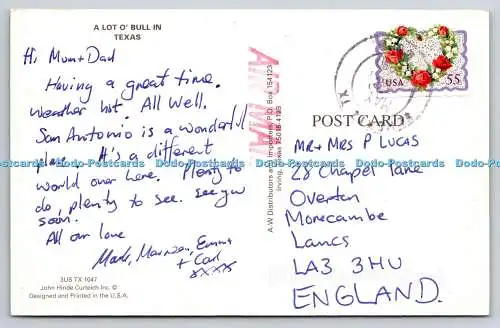 A LOT O' BULL IN
TEXAS
Hi Mum + Dad
Having a great time.
weather hot. All Well.
San Antonio is a wonderful
place. It's a different
world over here. Plenty to
do, plenty to see. see you
soon.
All our love
Mark, Maureen, Emma
+ Carl
xxxx
3US TX 1047
John Hinde Curteich Inc. ©
Designed and Printed in the U.S.A.
A-W Distributors and Importers, P.O. Box 154123
Irving, Texas 75015-4123
AIR MAIL
USA 55
POST CARD
MR + MRS P LUCAS
28 Chapel Lane
Overton
Morecambe
Lancs
LA3 3HU
ENGLAND.
Dodo-Postcards Dodo-Postcards Dodo-Postcards Dodo-Postcards Dodo-Postcards